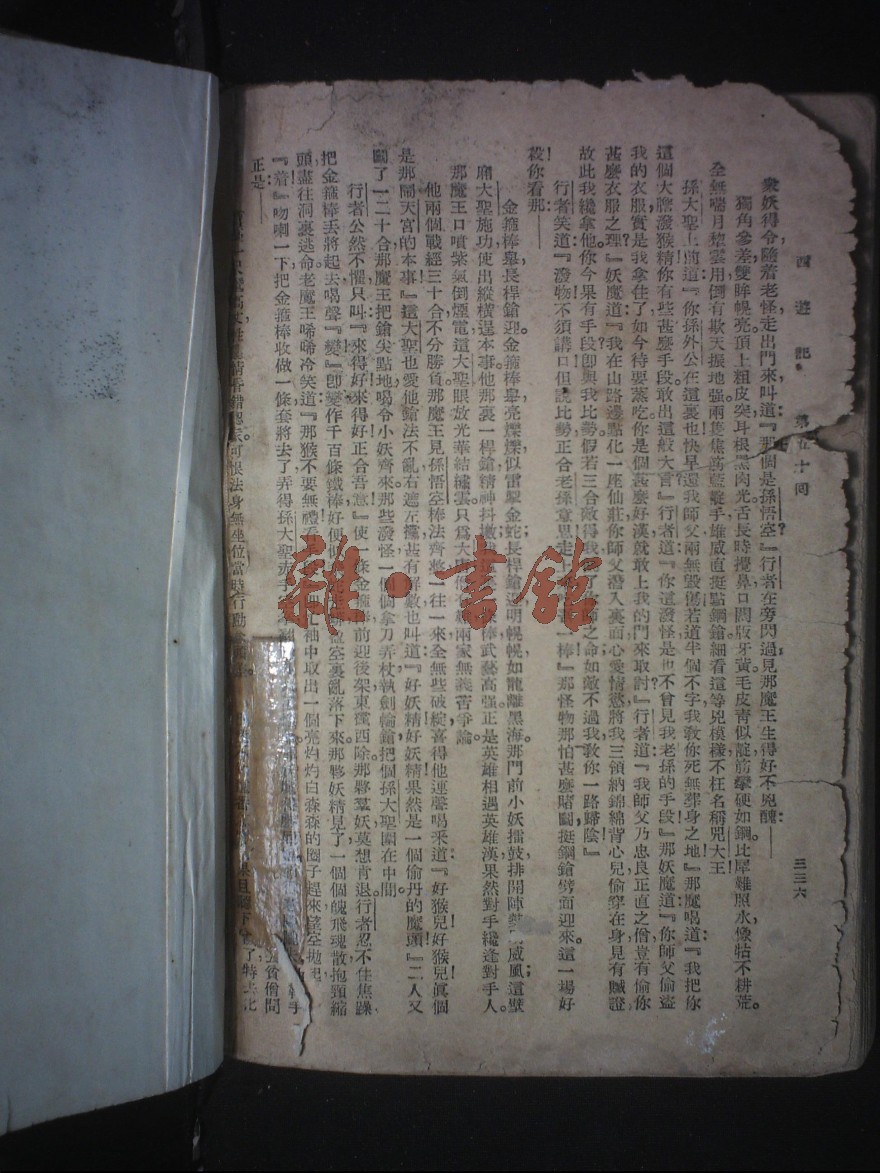 西遊記 第五十回 三三六
衆妖得令隨着老怪走出門來叫道『那個是孫悟空?』行者在旁閃過見那魔王生得好不兇醜:——
獨角參差雙眸幌亮。頂上粗皮突耳根黑肉光舌長時攪鼻口闊版牙黃毛皮青似靛筋攣硬如鋼比犀難照水像牯不耕荒。
全無喘月犂雲用倒有欺天振地强兩隻焦筋藍靛手雄威直挺點鋼鎗細看這等兇模樣不枉名稱兕大王
孫大聖上前道:『你孫外公在這裏也快早還我師父兩無毀傷若道半個不字我敎你死無葬身之地!』那魔喝道:『我把你
這個大膽潑猴精你有些甚麼手段敢出這般大言!』行者道:『你這潑怪是也不曾見我老孫的手段』那妖魔道:『你師父偷盜
我的衣服實是我拿住了如今待要蒸吃你是個甚麼好漢就敢上我的門來取討!』行者道:『我師父乃忠良正直之僧豈有偷你
甚麼衣服之理?』妖魔道:『我在山路邊點化一座仙莊你師父潛入裏面心愛情慾將我三領納錦綿背心兒偷穿在身見有贓證
故此我纔拿他。你今果有手段卽與我比勢假若三合敵得我
之命如敵不過我敎你一路歸陰』
行者笑道:『潑物不須講口但說比勢正合老孫意思走上
一棒』那怪物那怕甚麼賭鬭挺鋼鎗劈面迎來。這一場好
殺!你看那——
金箍棒舉長桿鎗迎。金箍棒舉亮爍爍似雷掣金蛇長桿鎗迎明幌幌如龍離黑海那門前小妖擂鼓排開陣勢
威風這壁
廂大聖施功使出縱橫逞本事。他那裏一桿鎗精神抖擻
棒武藝高强正是英雄相遇英雄漢果然對手纔逢對手人。
那魔王口噴紫氣倒煙電這大聖眼放光華結繡雲只爲大
兩家無義苦爭論
他兩個戰經三十合不分勝負。那魔王見孫悟空棒法齊整一往一來全無些破綻喜得他連聲喝采道:『好猴兒!好猴兒!眞個
是那鬧天宮的本事!』這大聖也愛他鎗法不亂右遮左攩甚有解數也叫道:『好妖精!好妖精!果然是一個偷丹的魔頭!』二人又
鬭了一二十合那魔王把鎗尖點地喝令小妖齊來那些潑怪一個個拿刀弄杖執劍輪鎗把個孫大聖圍在中間。
行者公然不懼只叫:『來得好!來得好!正合吾意!』使一條金箍棒前迎後架東攩西除那夥羣妖莫想肯退行者忍不住焦躁
把金箍棒丟將起去喝聲『變!』卽變作千百條鐵棒好便似
空裏亂落下來那夥妖精見了一個個魄飛魂散抱頭縮
頭盡往洞裏逃命。老魔王唏唏冷笑道:『那猴不要無禮看
袖中取出一個亮灼灼白森森的圈子趕來望空拋起
『着!』唿喇一下把金箍棒收做一條套將去了弄得孫大聖赤手
正是——
可恨法身無坐位當時行動